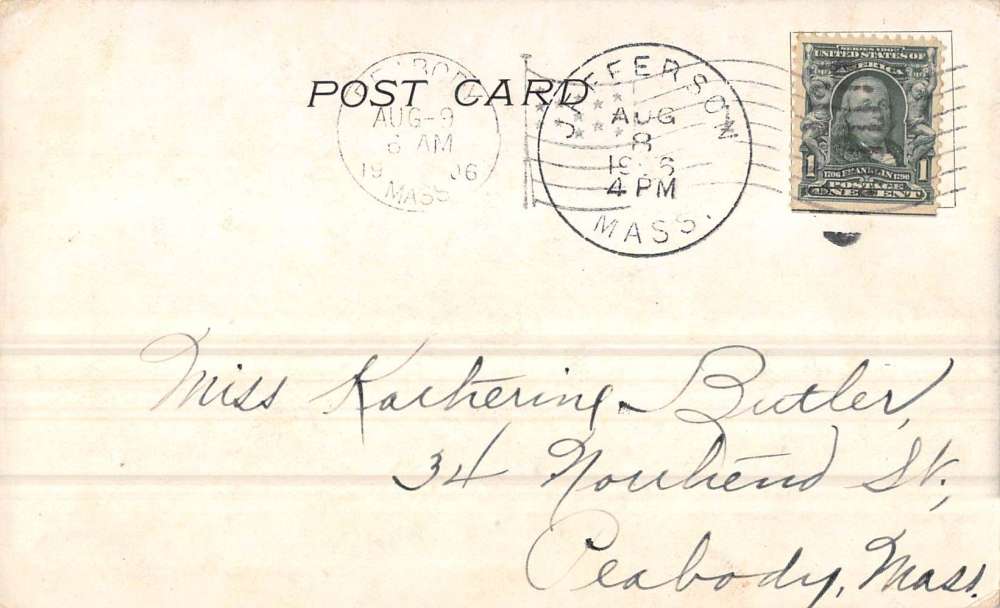 POST CARD
PEABODY
AUG-9
6 AM
1906
MASS.
JAFFERSON
AUG
8
1906
4 PM
MASS.
SERIES 1902
UNITED STATES OF
AMERICA
1 1
1706 FRANKLIN 1790
POSTAGE
ONE CENT
Miss Katherine Butler,
34 Northend St.,
Peabody, Mass.